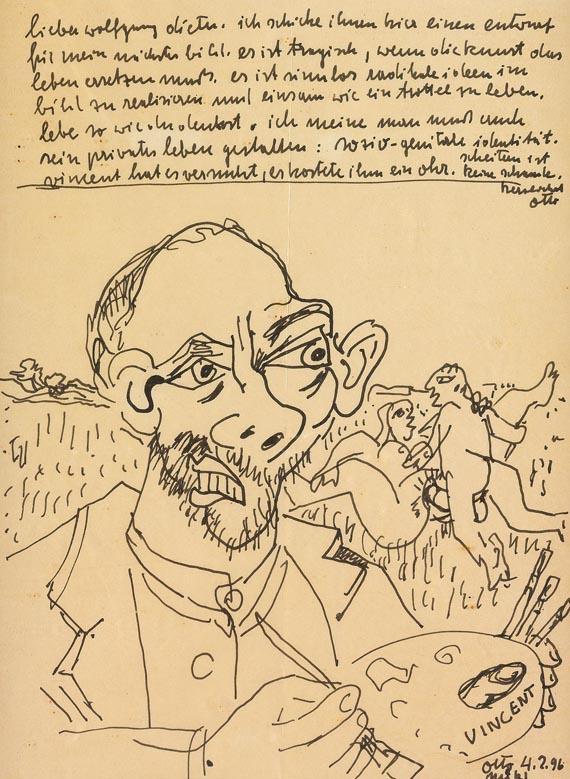 lieber wolfgang dietr. ich schicke ihnen hier einen entwurf
für mein nächstes bild. es ist tragisch, wenn die kunst das
leben ersetzen muss. es ist sinnlos radikale ideen im
bild zu realisieren und einsam wie ein trottel zu leben.
lebe so wie du denkst. ich meine man muss auch
sein privates leben gestalten: sozio-genitale identität.
vincent hat es versucht, es kostete ihm ein ohr. scheitern ist
keine schande.
otto
VINCENT
otto
4.2.96
mühl